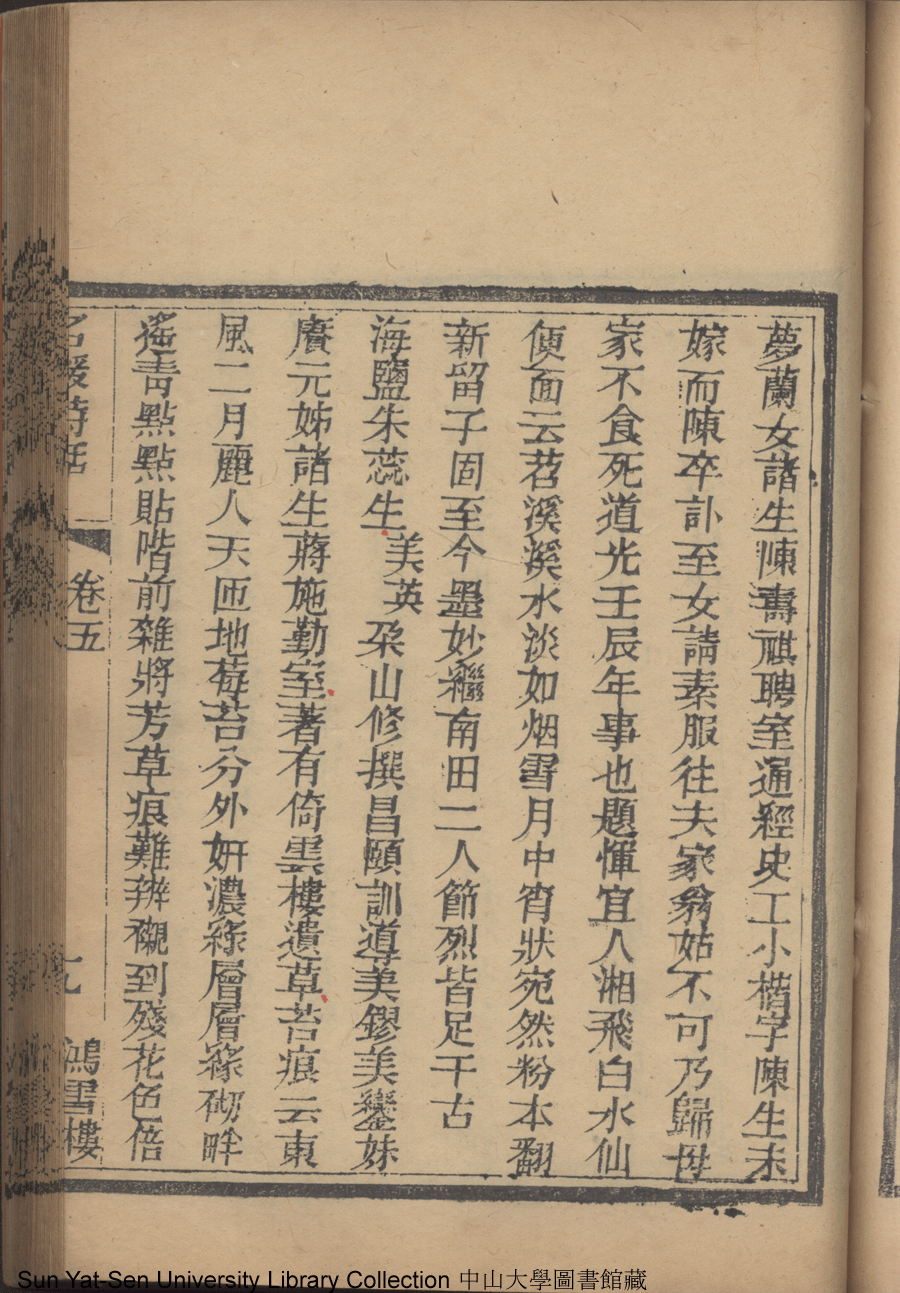 夢蘭女諸生陳壽祺聘室通經史工小楷字陳生未
嫁而陳卒訃至女請素服往夫家翁姑不可乃歸母
家不食死道光壬辰年事也題惲宜人湘飛白水仙
便面云苕溪溪水淡如烟雪月中宵狀宛然粉本翻
新留子固至今墨妙繼南田二人節烈皆足千古
海鹽朱蕊生
美英
朶山修撰昌頤訓導美鏐美鑾妹
賡元姊諸生蔣施勤室著有倚雲樓遺草苔痕云東
風二月麗人天匝地莓苔分外妍濃綠層層綠砌畔
遙青點點貼階前雜將芳草痕難辨襯到殘花色倍
名媛詩話
卷五
九
鴻雪樓
Sun Yat-Sen University Library Collection 中山大學圖書館藏